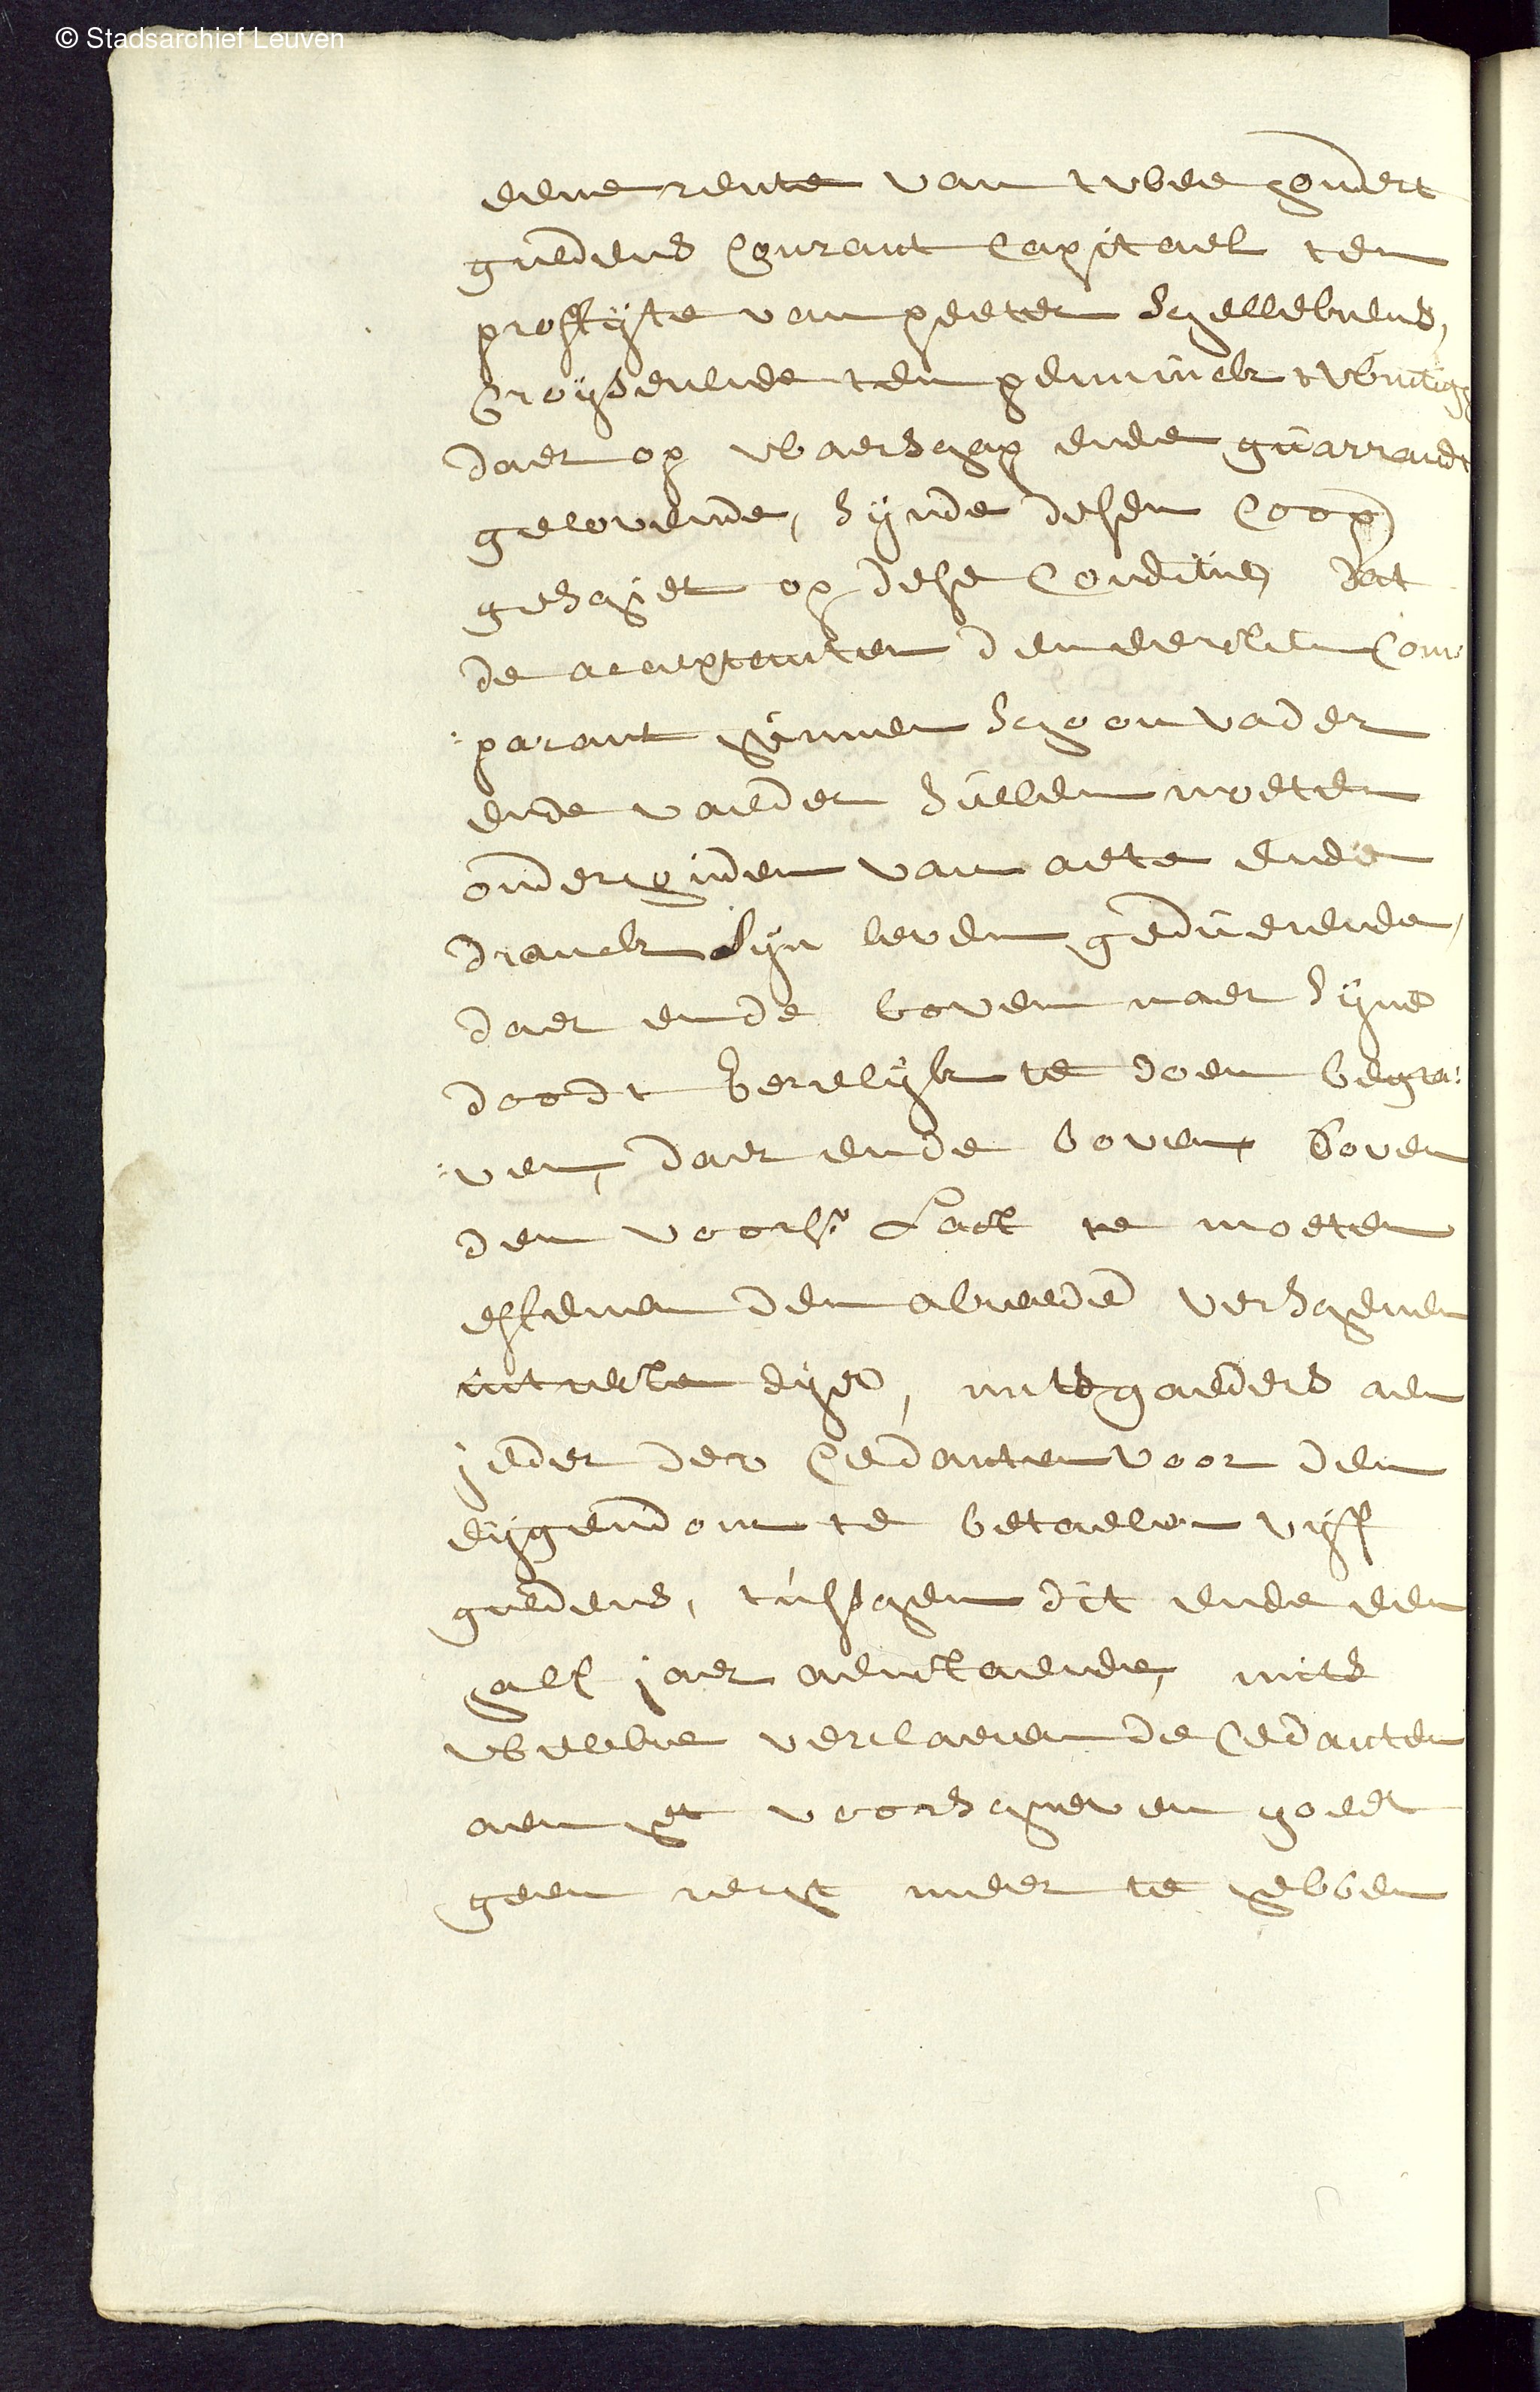 © Stadsarchief Leuven
eene rente van twee hondert
guldens courant capitael ten
proffyte van peeter Schellekens,
Croyserende den penninck twintigh
daer op waerschap ende guarrandt
gelovende, synde desen coop
geschiet op dese conditie, dat
de acceptanten den eersten Com
:parant hunnen schoonvader
ende vaeder sullen moeten
onderhouden van aete ende
dranck syn leven geduerende,
daer ende boven naer syne
doodt eerelyck te doen begra:
:ven, daer ende boven boven
den voors. Last te moeten
effenen den alreede verschenen
intrest dyer, mitsgaeders aen
jeder der Cedanten voor den
eygendom te betaelen vyff
guldens, tusschen dit ende een
half jaer aenstaende, mits
welcke verclaeren de Cedanten
aen het voorschreven goedt
geen recht meer te hebben